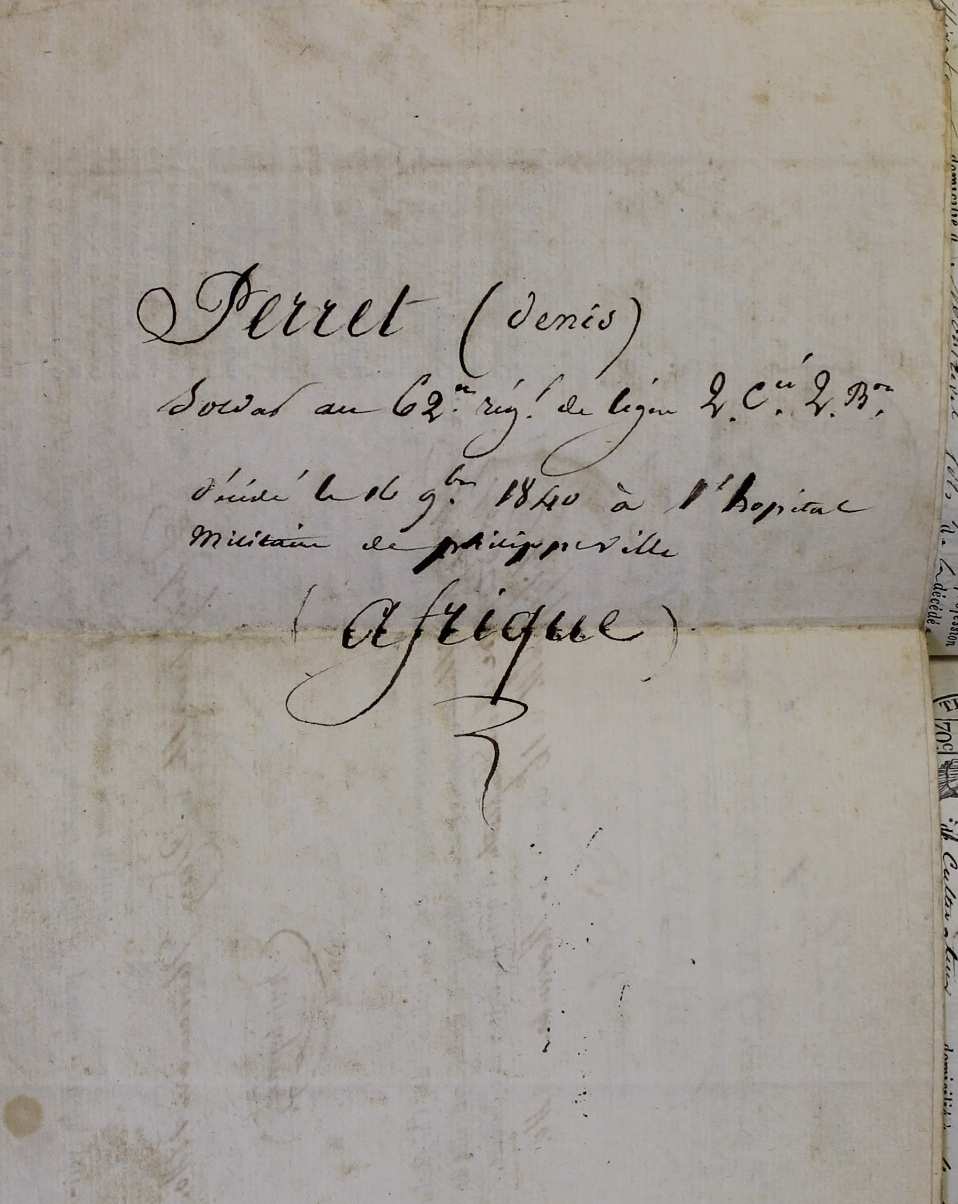 Perret (Denis)
Soldat au 62.me rég.t de ligne 2. C.ie 2. B.on
décédé le 16 9.bre 1840 à l'hopital
Militaire de philippeville
(Afrique)
domicilié à
décédé.
70c
Cultivateur
domicilié à